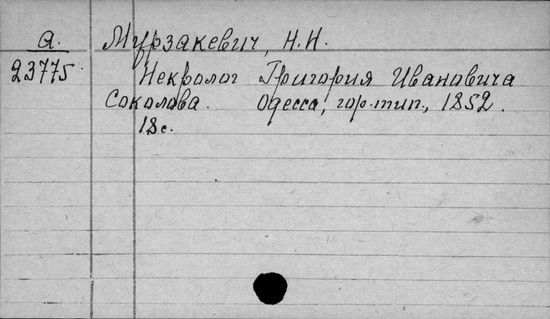 а. Мурзакевич, Н.Н.
23775. Некролог Григория Ивановича
Соколова. Одесса, гор. тип., 1852.
18 с.